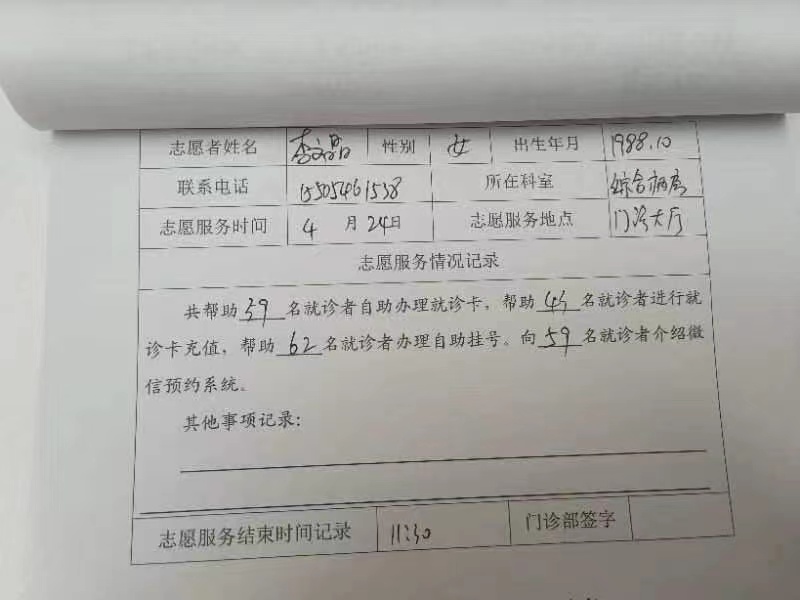 志愿者姓名 李文晶 性别 女 出生年月 1988.10
联系电话 15505461538 所在科室 综合病房
志愿服务时间 4 月 24日 志愿服务地点 门诊大厅
志愿服务情况记录
共帮助39名就诊者自助办理就诊卡，帮助45名就诊者进行就
诊卡充值，帮助62名就诊者办理自助挂号。向59名就诊者介绍微
信预约系统。
其他事项记录：
志愿服务结束时间记录 11:30 门诊部签字